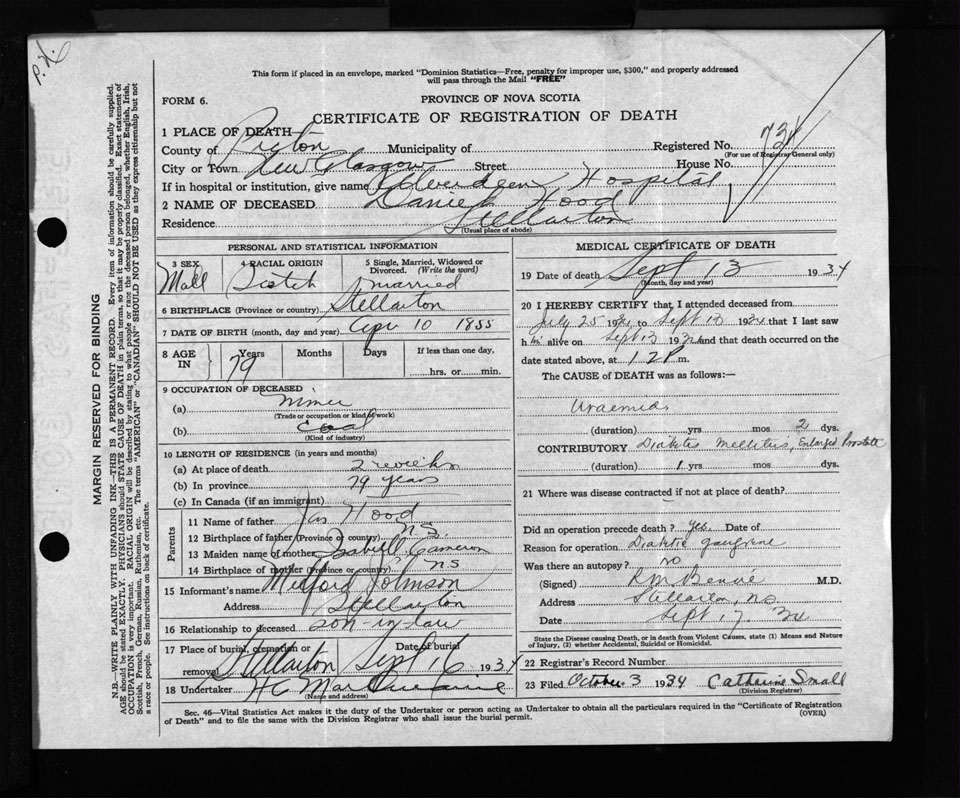 P.H.
This form if placed in an envelope, marked "Dominion Statistics—Free, penalty for improper use, $300," and properly addressed
will pass through the Mail "FREE"
FORM 6.
PROVINCE OF NOVA SCOTIA
CERTIFICATE OF REGISTRATION OF DEATH
1 PLACE OF DEATH
County of Pictou Municipality of Registered No. 724
(For use of Registrar General only)
City or Town New Glasgow Street House No.
If in hospital or institution, give name Aberdeen Hospital
2 NAME OF DECEASED Daniel Hood
Residence Stellarton
(Usual place of abode)
PERSONAL AND STATISTICAL INFORMATION
3 SEX 4 RACIAL ORIGIN 5 Single, Married, Widowed or
Divorced. (Write the word)
Male Scotch married
6 BIRTHPLACE (Province or country) Stellarton
7 DATE OF BIRTH (month, day and year) Apr 10 1855
8 AGE IN Years Months Days If less than one day,
79 hrs. or min.
9 OCCUPATION OF DECEASED
(a) miner
(Trade or occupation or kind of work)
(b) coal
(Kind of industry)
10 LENGTH OF RESIDENCE (in years and months)
(a) At place of death 2 weeks
(b) In province 79 years
(c) In Canada (if an immigrant)
Parents
11 Name of father Jas Hood
12 Birthplace of father (Province or country) N.S.
13 Maiden name of mother Isabell Cameron
14 Birthplace of mother (Province or country) N S
15 Informant's name Milford Johnson
Address Stellarton
16 Relationship to deceased son-in-law
17 Place of burial, cremation or Date of burial
removal Stellarton Sept 16 1934
18 Undertaker H C
(Name and address)
MEDICAL CERTIFICATE OF DEATH
19 Date of death Sept 13 1934
(Month, day and year)
20 I HEREBY CERTIFY that I attended deceased from
July 25 1934 to Sept 13 1934 that I last saw
him alive on Sept 13 1934 and that death occurred on the
date stated above, at 12 P m.
The CAUSE of DEATH was as follows:—
Uraemia
(duration) yrs mos 2 dys.
CONTRIBUTORY Diabetes Mellitus, Enlarged Prostate
(duration) 1 yrs mos dys.
21 Where was disease contracted if not at place of death?
Did an operation precede death? yes. Date of
Reason for operation Diabetic gangrene
Was there an autopsy? no
(Signed) R M Benvie M.D.
Address Stellarton, N.S.
Date Sept 17. 34
State the Disease causing Death, or in death from Violent Causes, state (1) Means and Nature
of Injury, (2) whether Accidental, Suicidal or Homicidal.
22 Registrar's Record Number
23 Filed October 3 1934 Catherine Small
(Division Registrar)
Sec. 46—Vital Statistics Act makes it the duty of the Undertaker or person acting as Undertaker to obtain all the particulars required in the "Certificate of Registration
of Death" and to file the same with the Division Registrar who shall issue the burial permit. (OVER)
MARGIN RESERVED FOR BINDING
N.B.—WRITE PLAINLY WITH UNFADING INK—THIS IS A PERMANENT RECORD. Every item of information should be carefully supplied.
AGE should be stated EXACTLY. PHYSICIANS should STATE CAUSE OF DEATH in plain terms, so that it may be properly classified. Exact statement of
OCCUPATION is very important. RACIAL ORIGIN will be described by stating to what people or race the deceased person belonged, whether English, Irish,
Scottish, French, German, Russian, Ruthenian, etc. The terms "AMERICAN" or "CANADIAN" SHOULD NOT BE USED as they express citizenship but not
a race or people. See instructions on back of certificate.